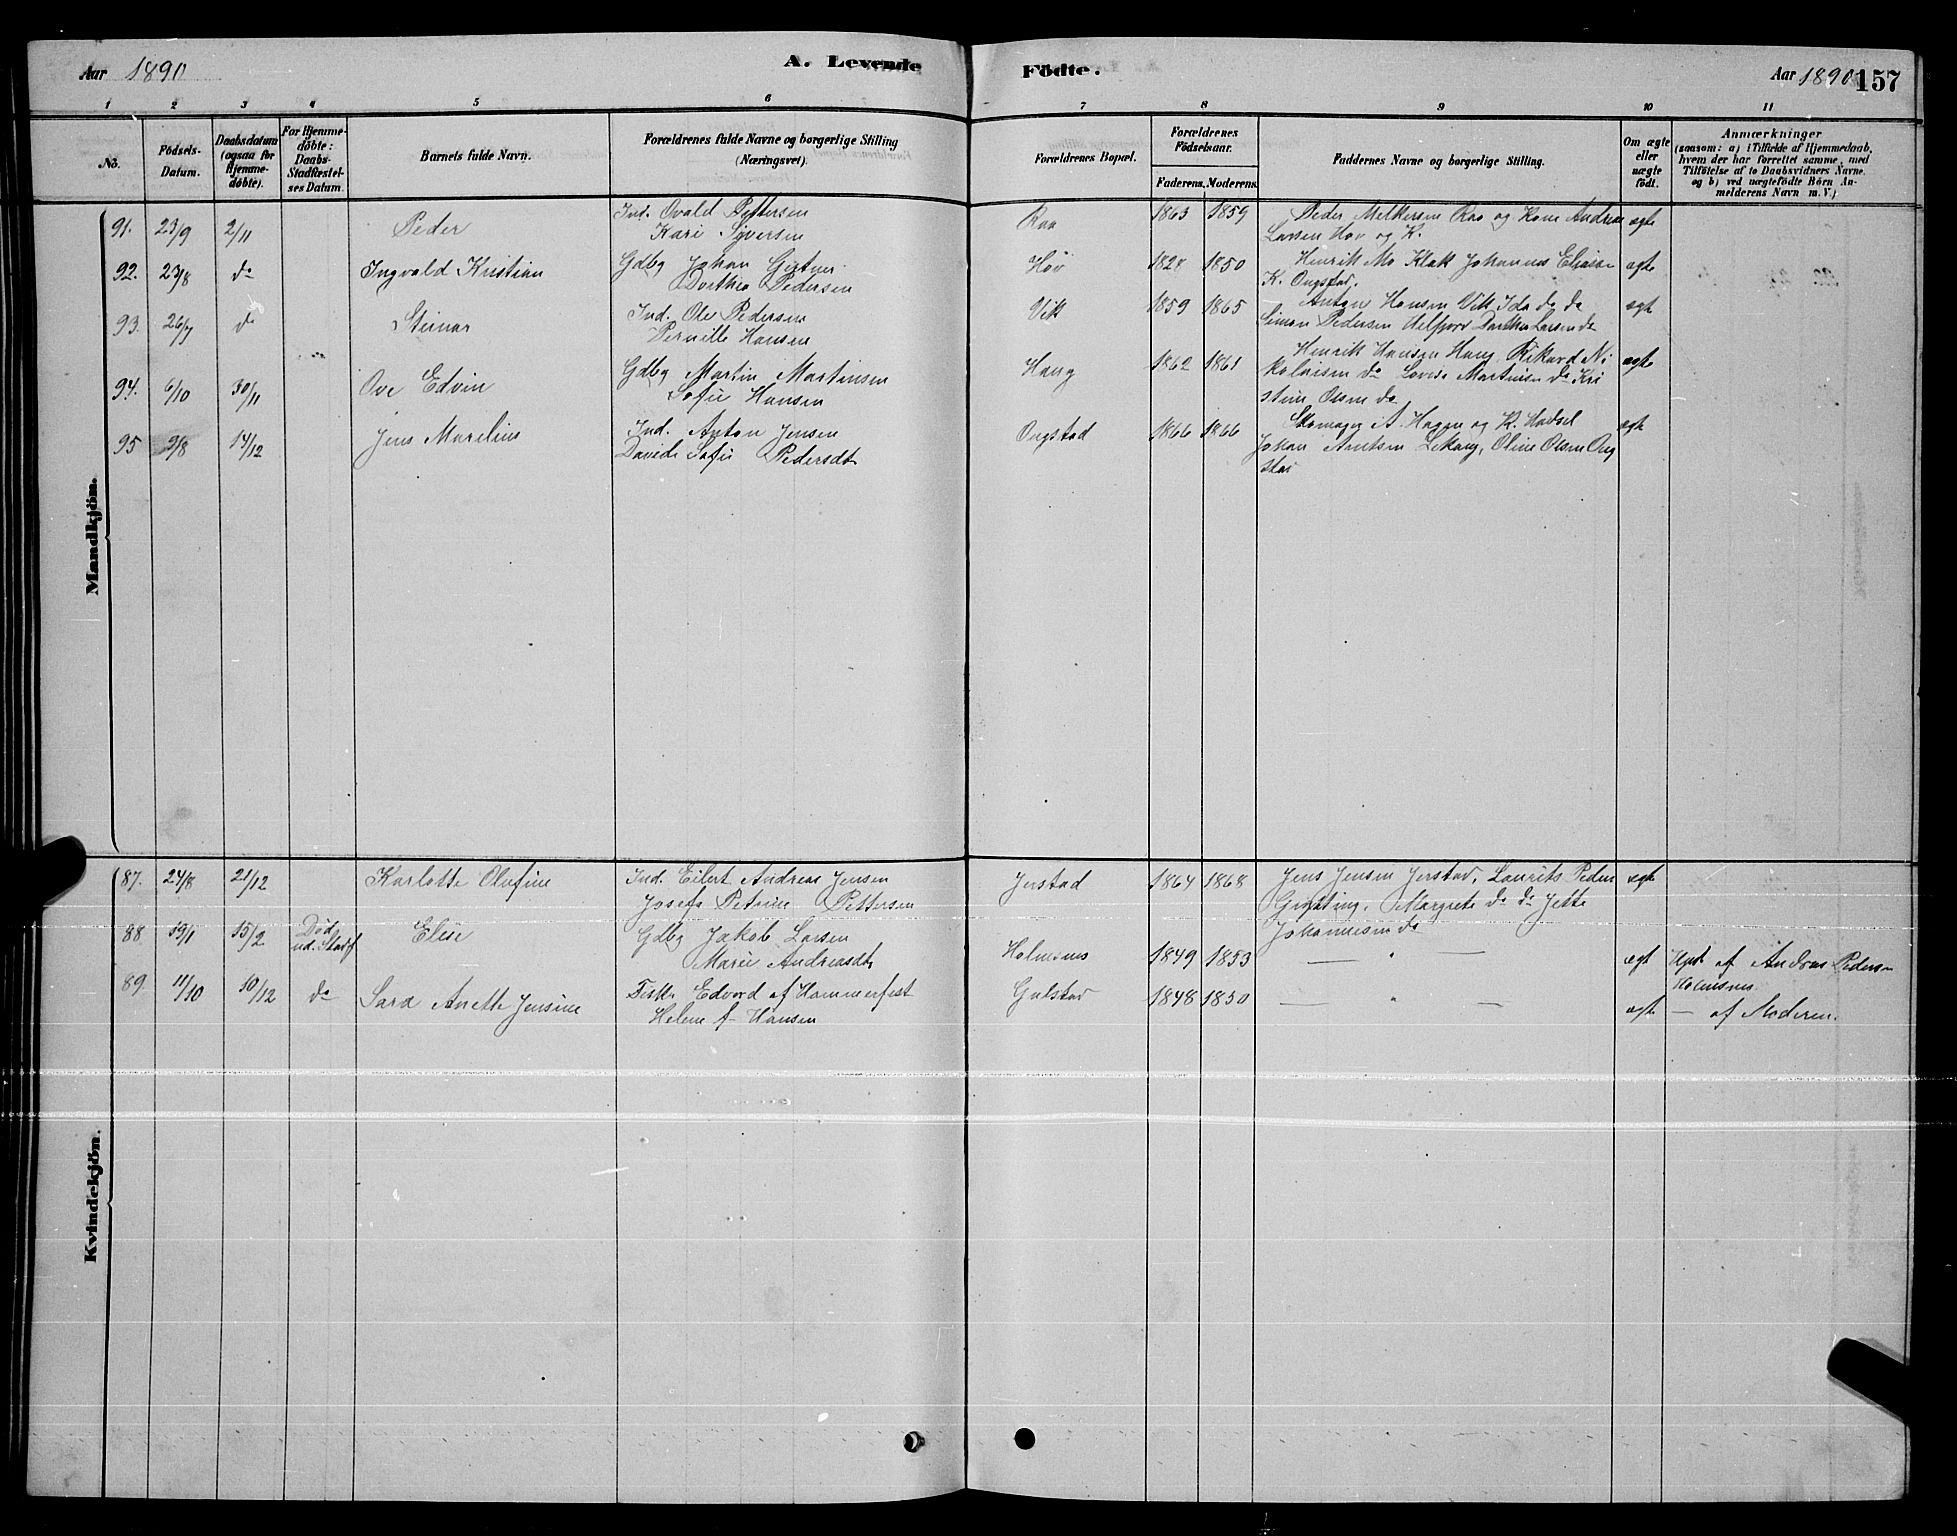 Aar 1890
A. Levende
Födte.
Aar 1890
157
1 2 3 4 5 6 7 8 9 10 11
No.
Födsels-
Datum.
Daabsdatum
(ogsaa for
Hjemme-
döbte).
For Hjemme-
döbte:
Daabs-
Stadfæstel-
ses Datum.
Barnets fulde Navn.
Forældrenes fulde Navne og borgerlige Stilling
(Næringsvei).
Forældrenes Bopæl.
Forældrenes
Födselsaar.
Faderens. Moderens.
Faddernes Navne og borgerlige Stilling.
Om ægte
eller
uægte
födt.
Anmærkninger
(saasom: a) i Tilfælde af Hjemmedaab,
hvem der har forrettet samme, med
Tilföielse af to Daabsvidners Navne.
og b) ved uægtefödte Börn An-
melderens Navn m. V.)
Mandkjön.
91. 23/9 2/11 Peder Ind. Ovald Pettersen
Kari Syversen
Raa 1863 1859 Peder Melkersen Raa og Kone Andrea
Larsen Hov og K.
ægte
92. 23/8 do Ingvald Kristian Gdbg Johan
Dorthea Pedersen
Hov 1828 1850 Henrik Mo Klak Johannes Eliasen
K. Ongstad.
ægte
93. 26/7 do Steinar Ind. Ole Pedersen
Pernille Hansen
Vik 1859 1865 Anton Hansen Vik Ida do do
Simon Pedersen Dorthea Larsen do
ægt
94. 6/10 30/11 Ove Edvin Gdbg Martin Martinsen
Sofie Hansen
Haug 1862 1861 Henrik Hansen Haug, Rikard Ni
kolaisen do Lovise Martinsen do Kri
stine Olsen do
ægte
95 9/8 14/12 Jens Marelius Ind. Anton Jensen
Davide Sofie Pedersdt
Ongstad 1866 1866 Skomager A. Hagen og K. Hadsel
Johan Arntsen Lekang, Oline Olsen Ong
stad
ægte
Kvindekjön.
87. 24/8 21/12 Karlotte Olufine Ind. Eilert Andreas Jensen
Josefa Petrine Pettersen
Jerstad 1864 1868 Jens Jensen Jerstad, Laurits Peder
Margrete do do Jette
Johannesen do
ægt
88 19/1 15/2 Död
ud. Stadf
Elise Gdbg Jakob Larsen
Marie Andreasdt
Holmsnes 1849 1853 — " — ægt Hjdt af Andreas Pedersen
Holmsnes
89. 11/10 10/12 do Sara Anette Jensine Fisk. Edvard af Hammerfest
Helene f. Hansen
Gulstad 1848 1850 — " — ægt — af Moderen.